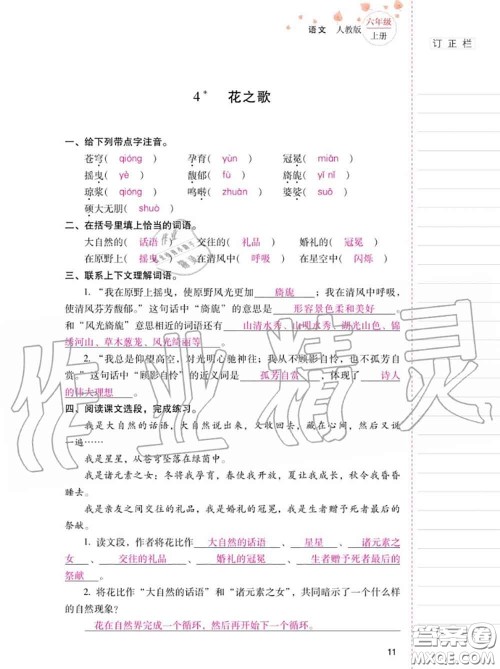 语文 人教版 六年级 上册
订正栏
4* 花之歌
一、给下列带点字注音。
苍穹( qióng ) 孕育( yùn ) 冠冕( miǎn )
摇曳( yè ) 馥郁( fù ) 旖旎( yǐ nǐ )
琼浆( qióng ) 鸣啭( zhuàn ) 婆娑( suō )
硕大无朋( shuò )
二、在括号里填上恰当的词语。
大自然的( 话语 ) 交往的( 礼品 ) 婚礼的( 冠冕 )
在原野上( 摇曳 ) 在清风中( 呼吸 ) 在星空中( 闪烁 )
三、联系上下文理解词语。
1. “我在原野上摇曳，使原野风光更加 旖旎 ；我在清风中呼吸，
使清风芬芳馥郁。”这句话中“旖旎”的意思是 形容景色柔和美好
和“风光旖旎”意思相近的词语还有 山清水秀、山明水秀、湖光山色、锦
绣河山、草木葱茏、风光绮丽等
2. “我总是仰望高空，对光明心驰神往；我从不顾影自怜，也不孤芳
自赏。”这句话中“顾影自怜”的近义词是 孤芳自赏 ，体现了 诗人
的伟大理想 。
四、阅读课文选段，完成练习。
我是大自然的话语，大自然说出来，又收回去，藏在心间，然后又说
一遍……
我是星星，从苍穹坠落在绿茵中。
我是诸元素之女：冬将我孕育，春使我开放，夏让我成长，秋令我昏昏
睡去。
我是亲友之间交往的礼品，我是婚礼的冠冕，我是生者赠予死者最后的
祭献。
1. 读文段，作者将花比作 大自然的话语 、 星星 、 诸元素之
女 、 交往的礼品 、 婚礼的冠冕 、 生者赠予死者最后的
祭献 。
2. 将花比作“大自然的话语”和“诸元素之女”，共同暗示了一个什么样
的自然现象？
花在自然界完成一个循环，然后再开始下一个循环。
11
作业精灵